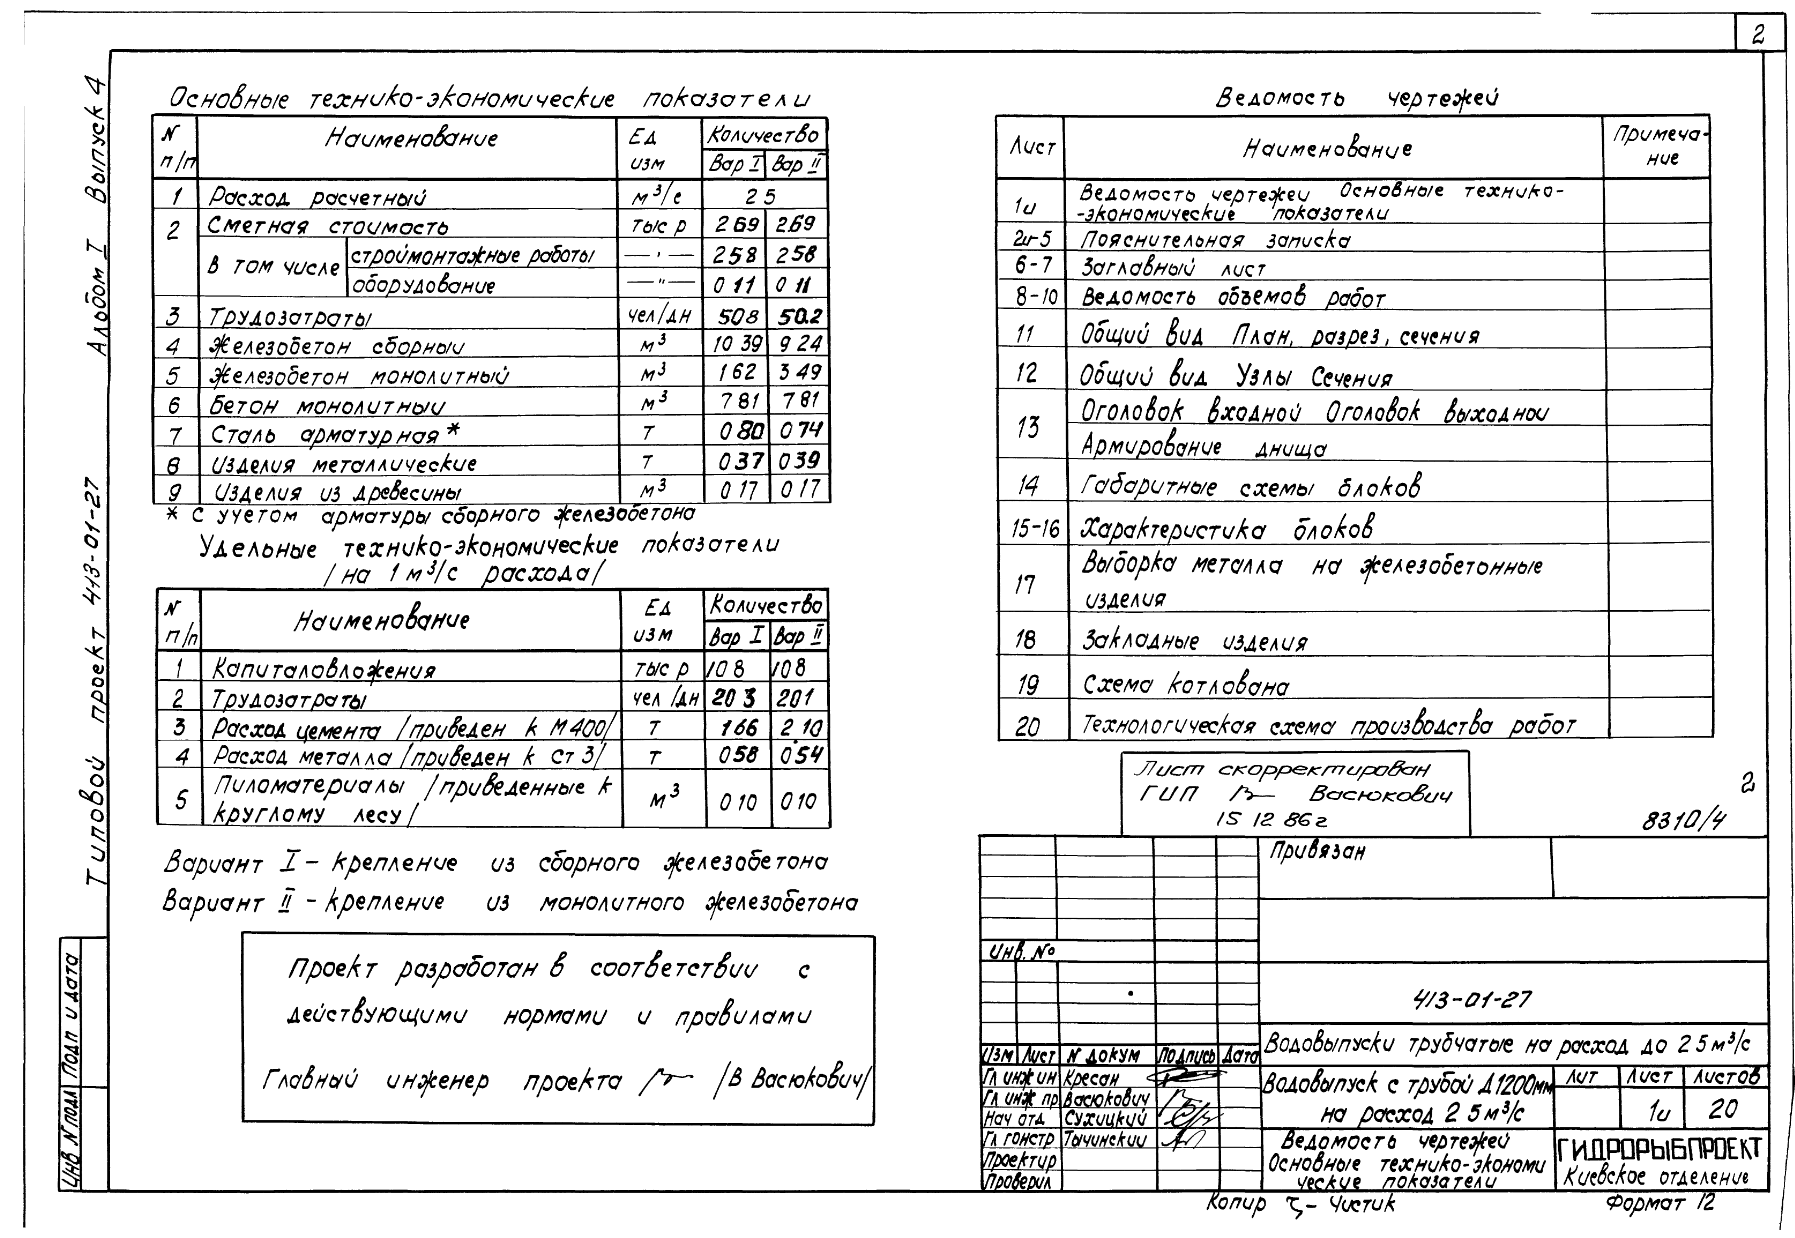 2
Типовой проект 413-01-27 Альбом I Выпуск 4
Основные технико-экономические показатели
N п/п Наименование Ед изм Количество
Вар I Вар II
1 Расход расчетный м³/с 2 5
2 Сметная стоимость тыс р 2 69 2.69
в том числе строймонтажные работы —"— 2 58 2 58
оборудование —"— 0 11 0 11
3 Трудозатраты чел/дн 508 50.2
4 Железобетон сборный м³ 10 39 9 24
5 Железобетон монолитный м³ 1 62 3 49
6 Бетон монолитный м³ 7 81 7 81
7 Сталь арматурная * т 0 80 0 74
8 Изделия металлические т 0 37 0 39
9 Изделия из древесины м³ 0 17 0 17
* с учетом арматуры сборного железобетона
Удельные технико-экономические показатели
/на 1 м³/с расхода/
N п/п Наименование Ед изм Количество
Вар I Вар II
1 Капиталовложения тыс р 1 08 1 08
2 Трудозатраты чел/дн 20 3 20 1
3 Расход цемента /приведен к М400/ т 1 66 2 10
4 Расход металла /приведен к Ст 3/ т 0 58 0.54
5 Пиломатериалы /приведенные к
круглому лесу/ м³ 0 10 0 10
Вариант I – крепление из сборного железобетона
Вариант II – крепление из монолитного железобетона
Проект разработан в соответствии с
действующими нормами и правилами
Главный инженер проекта /В Васюкович/
Ведомость чертежей
Лист Наименование Примеча-
ние
1и Ведомость чертежей Основные технико-
-экономические показатели
2и-5 Пояснительная записка
6-7 Заглавный лист
8-10 Ведомость объемов работ
11 Общий вид План, разрез, сечения
12 Общий вид Узлы Сечения
13 Оголовок входной Оголовок выходной
Армирование днища
14 Габаритные схемы блоков
15-16 Характеристика блоков
17 Выборка металла на железобетонные
изделия
18 Закладные изделия
19 Схема котлована
20 Технологическая схема производства работ
Лист скорректирован
ГИП Васюкович
15 12 86г
2
8310/4
Привязан
Инв. №
413-01-27
Изм Лист N докум Подпись Дата
Водовыпуски трубчатые на расход до 2 5 м³/с
Гл инж ин Кресан
Гл инж пр Васюкович
Нач отд Сухицкий
Гл констр Тычинский
Проектир
Проверил
Водовыпуск с трубой Д1200мм
на расход 2 5м³/с
Лит Лист Листов
1и 20
Ведомость чертежей
Основные технико-экономи
ческие показатели
ГИДРОРЫБПРОЕКТ
Киевское отделение
Копир Чистик Формат 12
Инв N подл Подп и дата